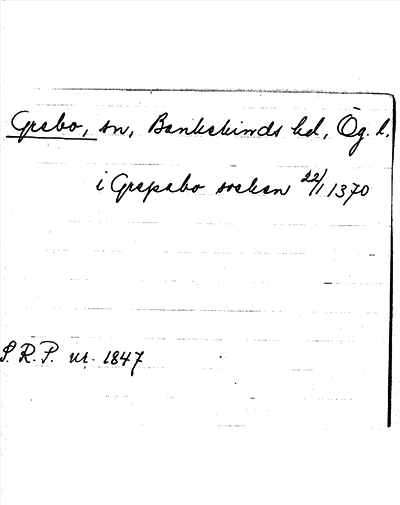 Grebo, sn, Bankekinds hd, Ög. l.
i Grepabo sokn 22/1 1370
S. R. P. nr. 1847